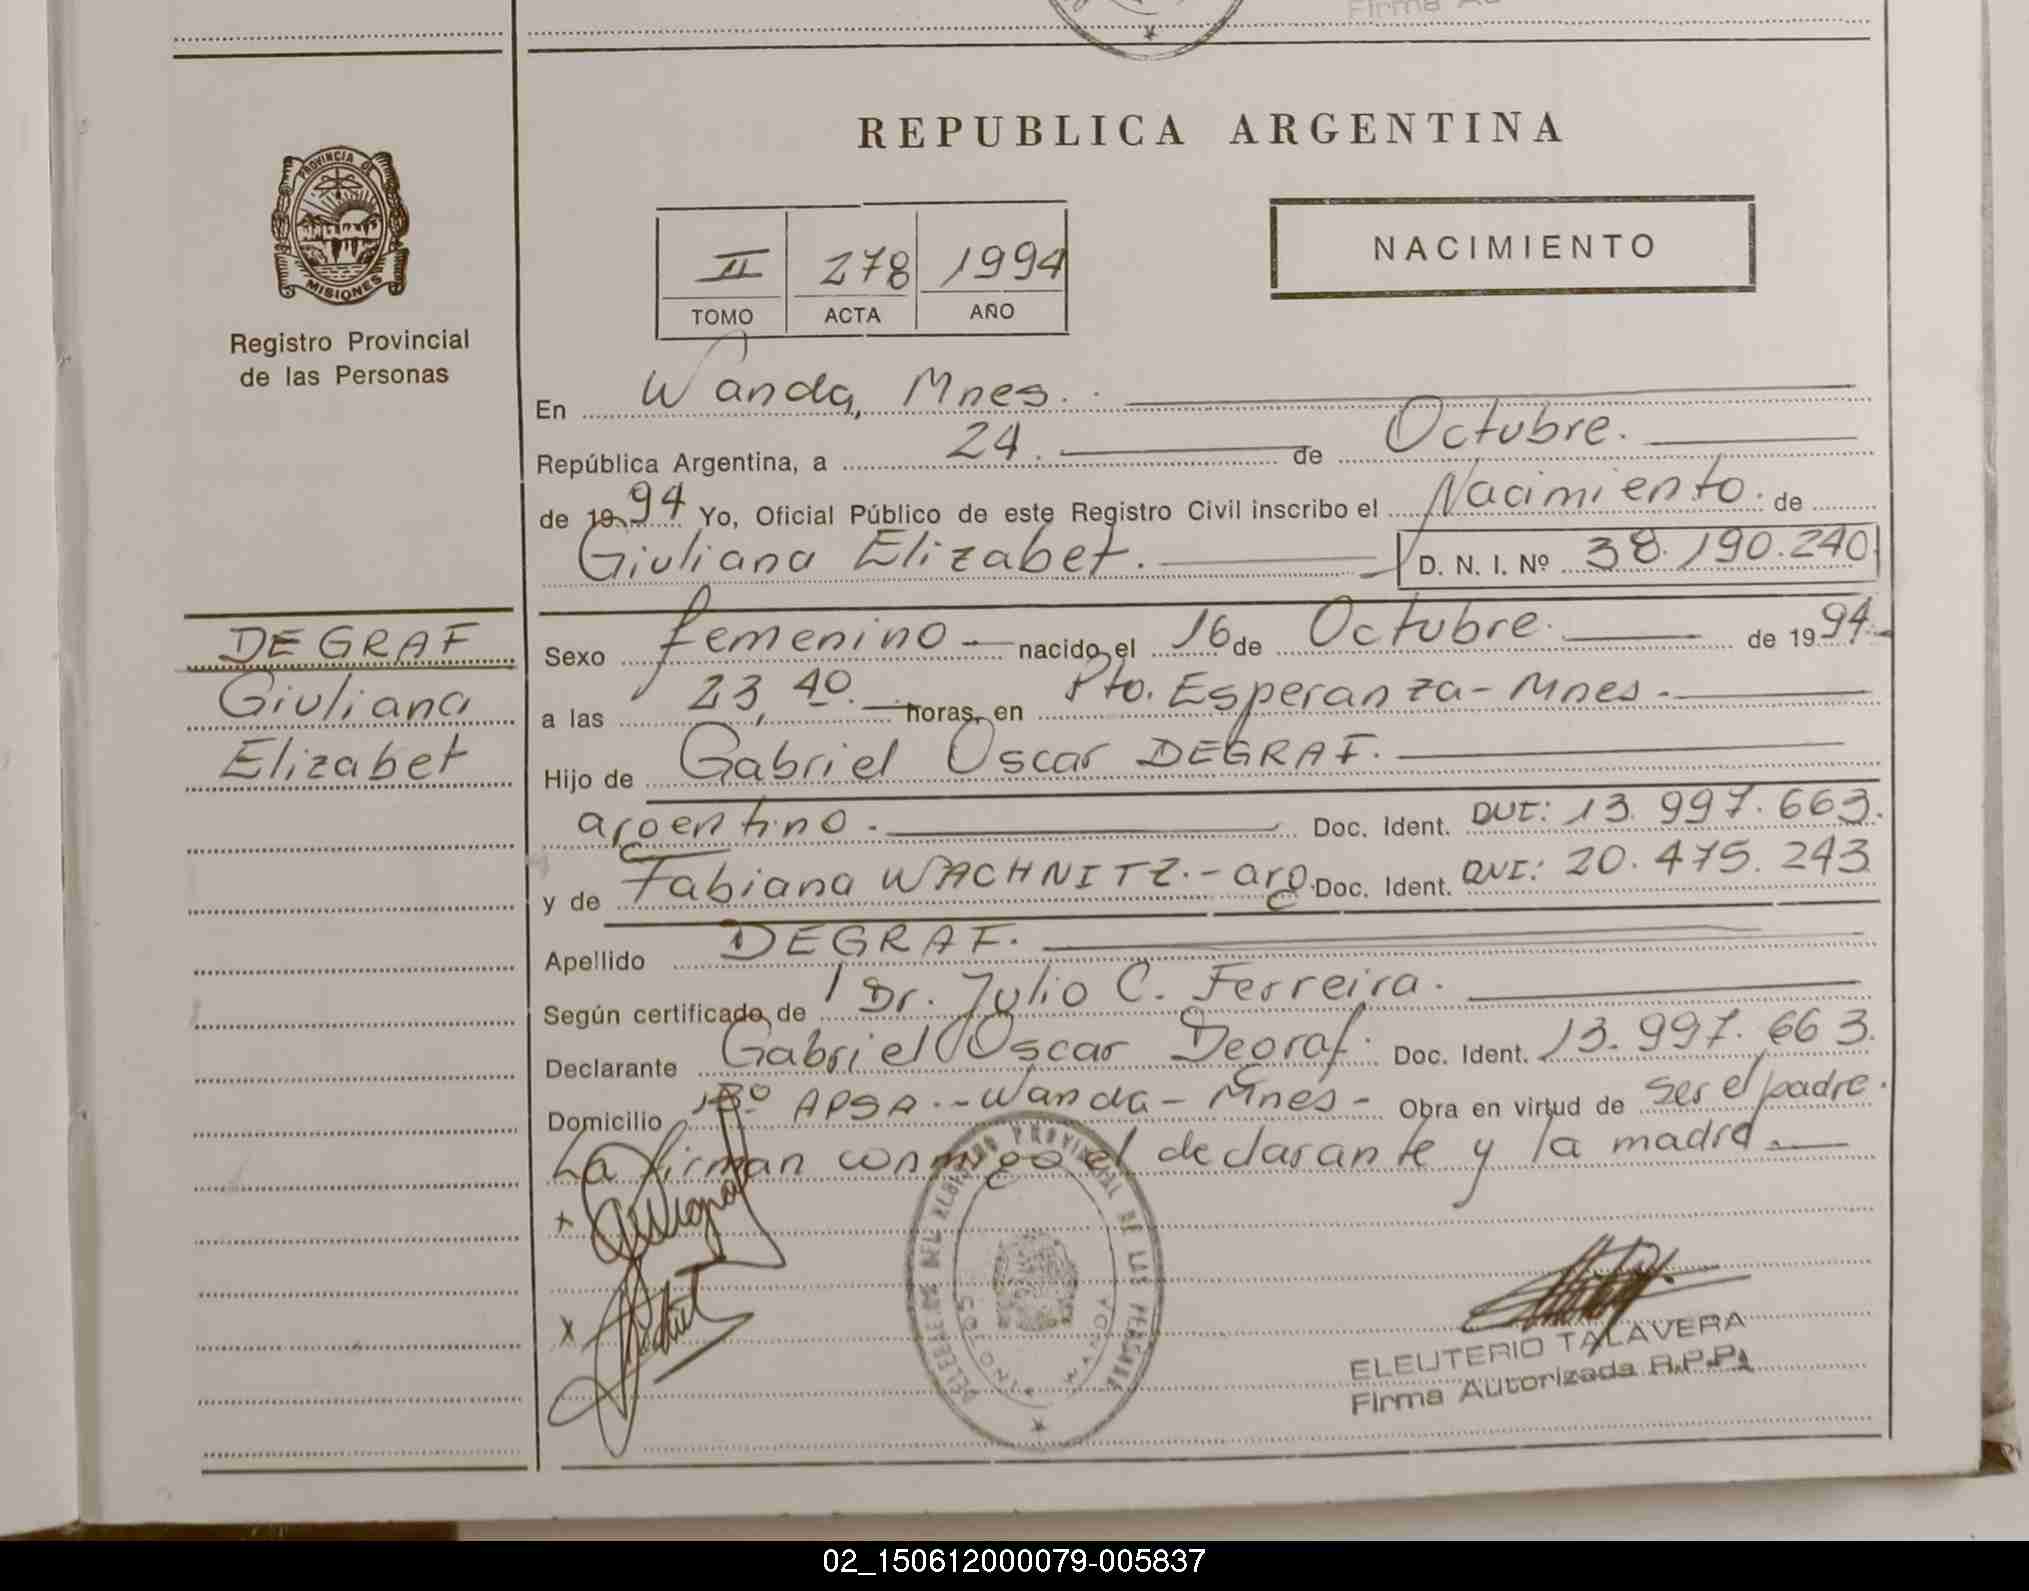 Firma Au
REPUBLICA ARGENTINA
PROVINCIA DE
MISIONES
Registro Provincial
de las Personas
II 278 1994
TOMO ACTA AÑO
NACIMIENTO
En Wanda, Mnes.
República Argentina, a 24. de Octubre.
de 1994 Yo, Oficial Público de este Registro Civil inscribo el Nacimiento. de
Giuliana Elizabet. D. N. I. Nº 38.190.240
DEGRAF
Giuliana
Elizabet
Sexo femenino nacido el 16 de Octubre. de 1994.
a las 23,40. horas, en Pto. Esperanza - Mnes.
Hijo de Gabriel Oscar DEGRAF.
argentino. Doc. Ident. DUI: 13.997.663.
y de Fabiana WACHNITZ.- arg. Doc. Ident. DUI: 20.475.243
Apellido DEGRAF.
Según certificado de Dr. Julio C. Ferreira.
Declarante Gabriel Oscar Degraf. Doc. Ident. 13.997.663.
Domicilio Bº APSA.- Wanda - Mnes - Obra en virtud de ser el padre.
La firman conmigo el declarante y la madre.
PROVINCIAL DE LAS PERSONAS
WANDA
ELEUTERIO TALAVERA
Firma Autorizada R.P.P.
02_150612000079-005837